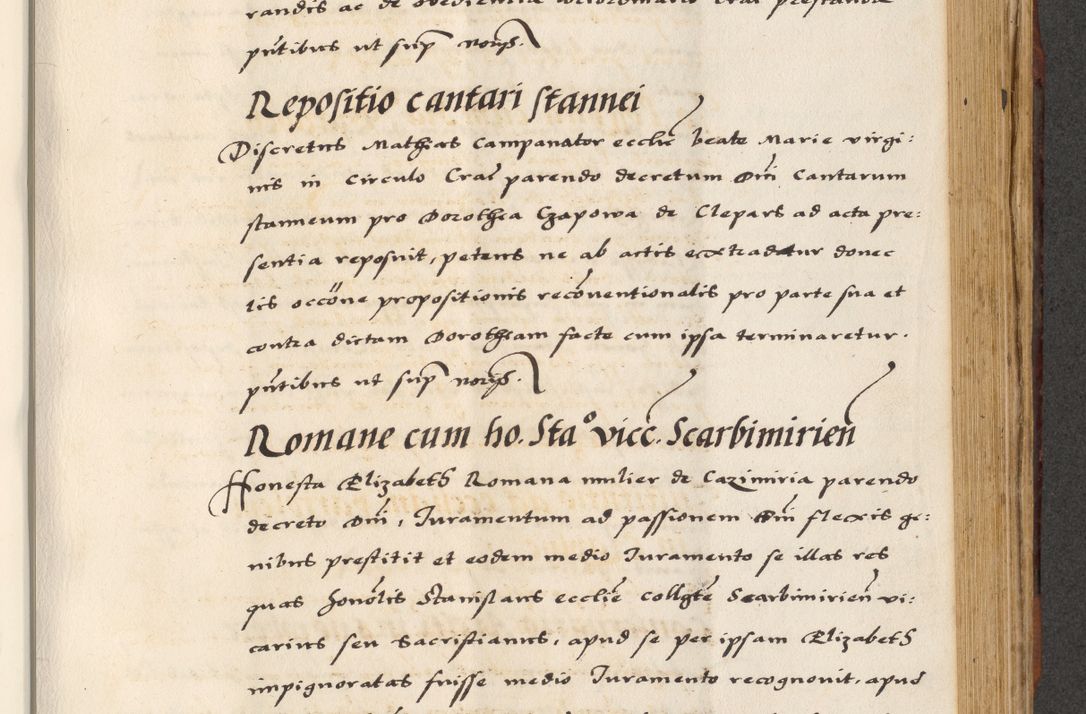 randis ac de obedientia
pñtibus ut supra noñs.
Repositio cantari stannei
Discretus Mathias Campanator ecclie beate Marie virgi:
nis in Circulo Crac parendo decretum Dñi Cantarum
stanneum pro Dorothea Czapowa de Clepars ad acta pre:
sentia reposuit, petens ne ab actis ecxtradatur donec
lis occõne propositionis recõventionalis pro parte sua et
contra dictam Dorotheam facte cum ipsa terminaretur.
pñtibus ut supra noñs.
Romane cum ho. Stao vicc. Scarbimirieñ
Honesta Elizabeth Romana mulier de Cazimiria parendo
decreto Dñi, Iuramentum ad passionem Dñi flecxis ge:
nibus prestitit et eodem medio Iuramento se illas res
quas honõlis Stanislaus ecclie collgte Scarbimirieñ vi:
carius seu Sacristianus, apud se per ipsam Elizabeth
impignoratas fuisse medio Iuramento recognovit, apud